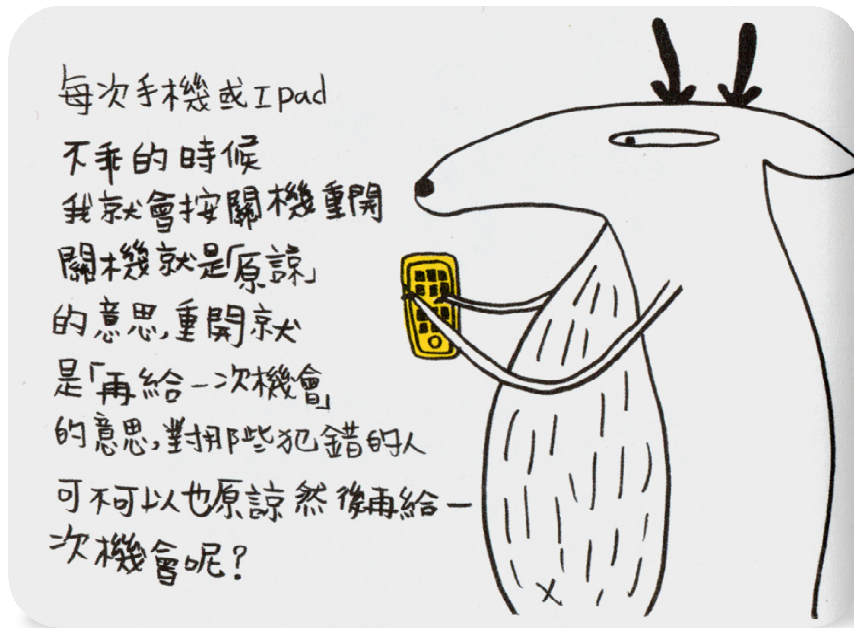 每次手機或Ipad
不乖的時候
我就會按關機重開
關機就是「原諒」
的意思,重開就
是「再給一次機會」
的意思,對那些犯錯的人
可不可以也原諒然後再給一
次機會呢?